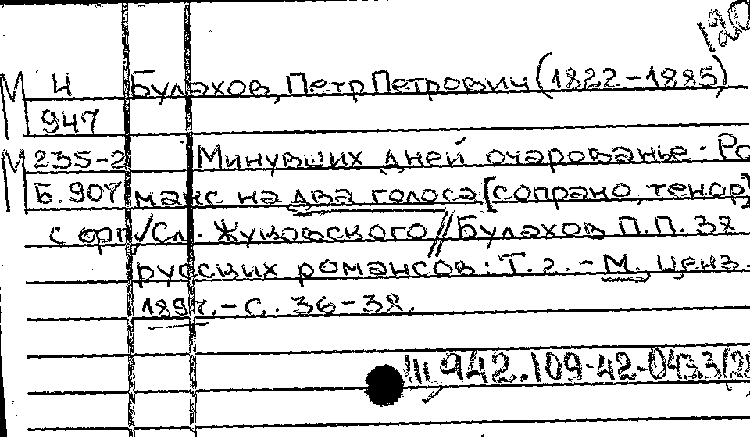 120
М Ч Булахов, Петр Петрович (1822-1885)
947
М 235-2 Минувших дней очарованье. Ро
Б. 907 манс на два голоса [сопрано, тенор]
с фп/Сл. Жуковского // Булахов П.П. 38
русских романсов: Т. 2. - М., Ценз.
1897. - С. 36-38.
942.109-42-0433